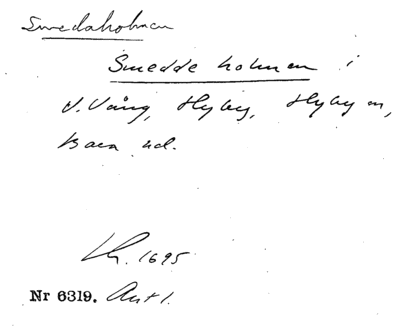 Smedaholmen
Smedde holmen i
V. Vång, Hyby, Hyby sn,
Bara hd.
Lh. 1695
Nr 6319. Ant 1.